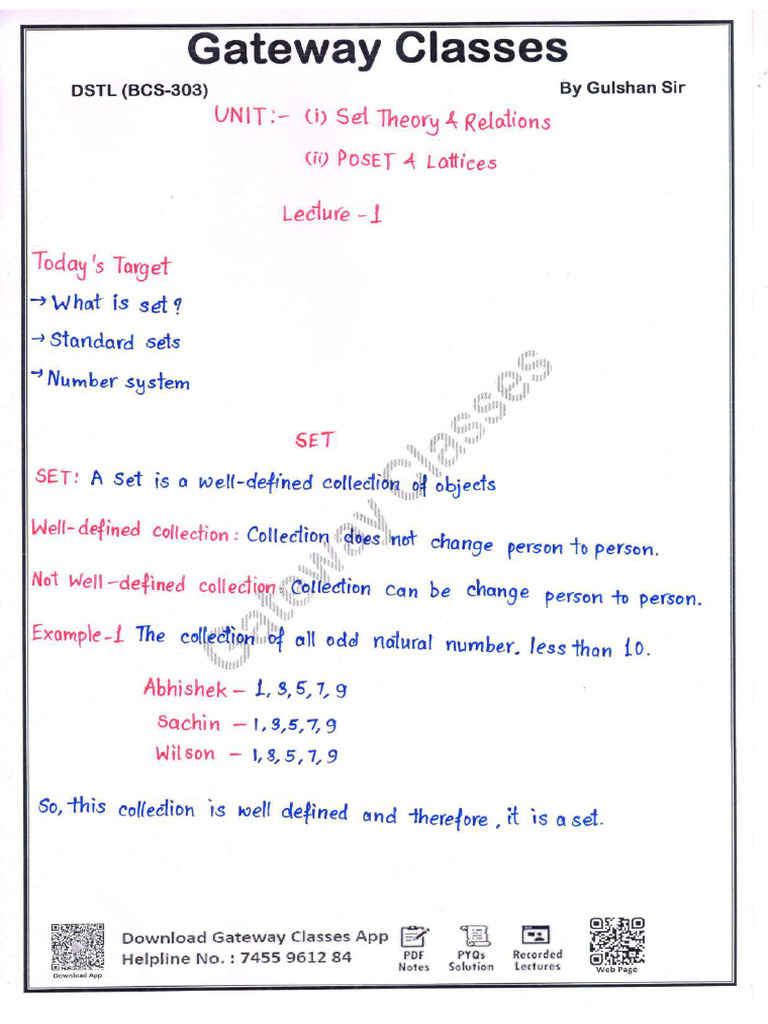 Gateway Classes
DSTL (BCS-303) By Gulshan Sir
UNIT:- (i) Set Theory & Relations
(ii) POSET & Lattices
Lecture -1
Today's Target
→ What is set?
→ Standard sets
→ Number system
SET
SET: A Set is a well-defined collection of objects
Well-defined collection: Collection does not change person to person.
Not Well-defined collection: Collection can be change person to person.
Example-1 The collection of all odd natural number. less than 10.
Abhishek – 1, 3, 5, 7, 9
Sachin – 1,3,5,7,9
Wilson – 1,3,5,7,9
So, this collection is well defined and therefore, it is a set.
Gateway Classes
Download Gateway Classes App
Helpline No. : 7455 9612 84
Download App
PDF Notes
PYQs Solution
Recorded Lectures
Web Page